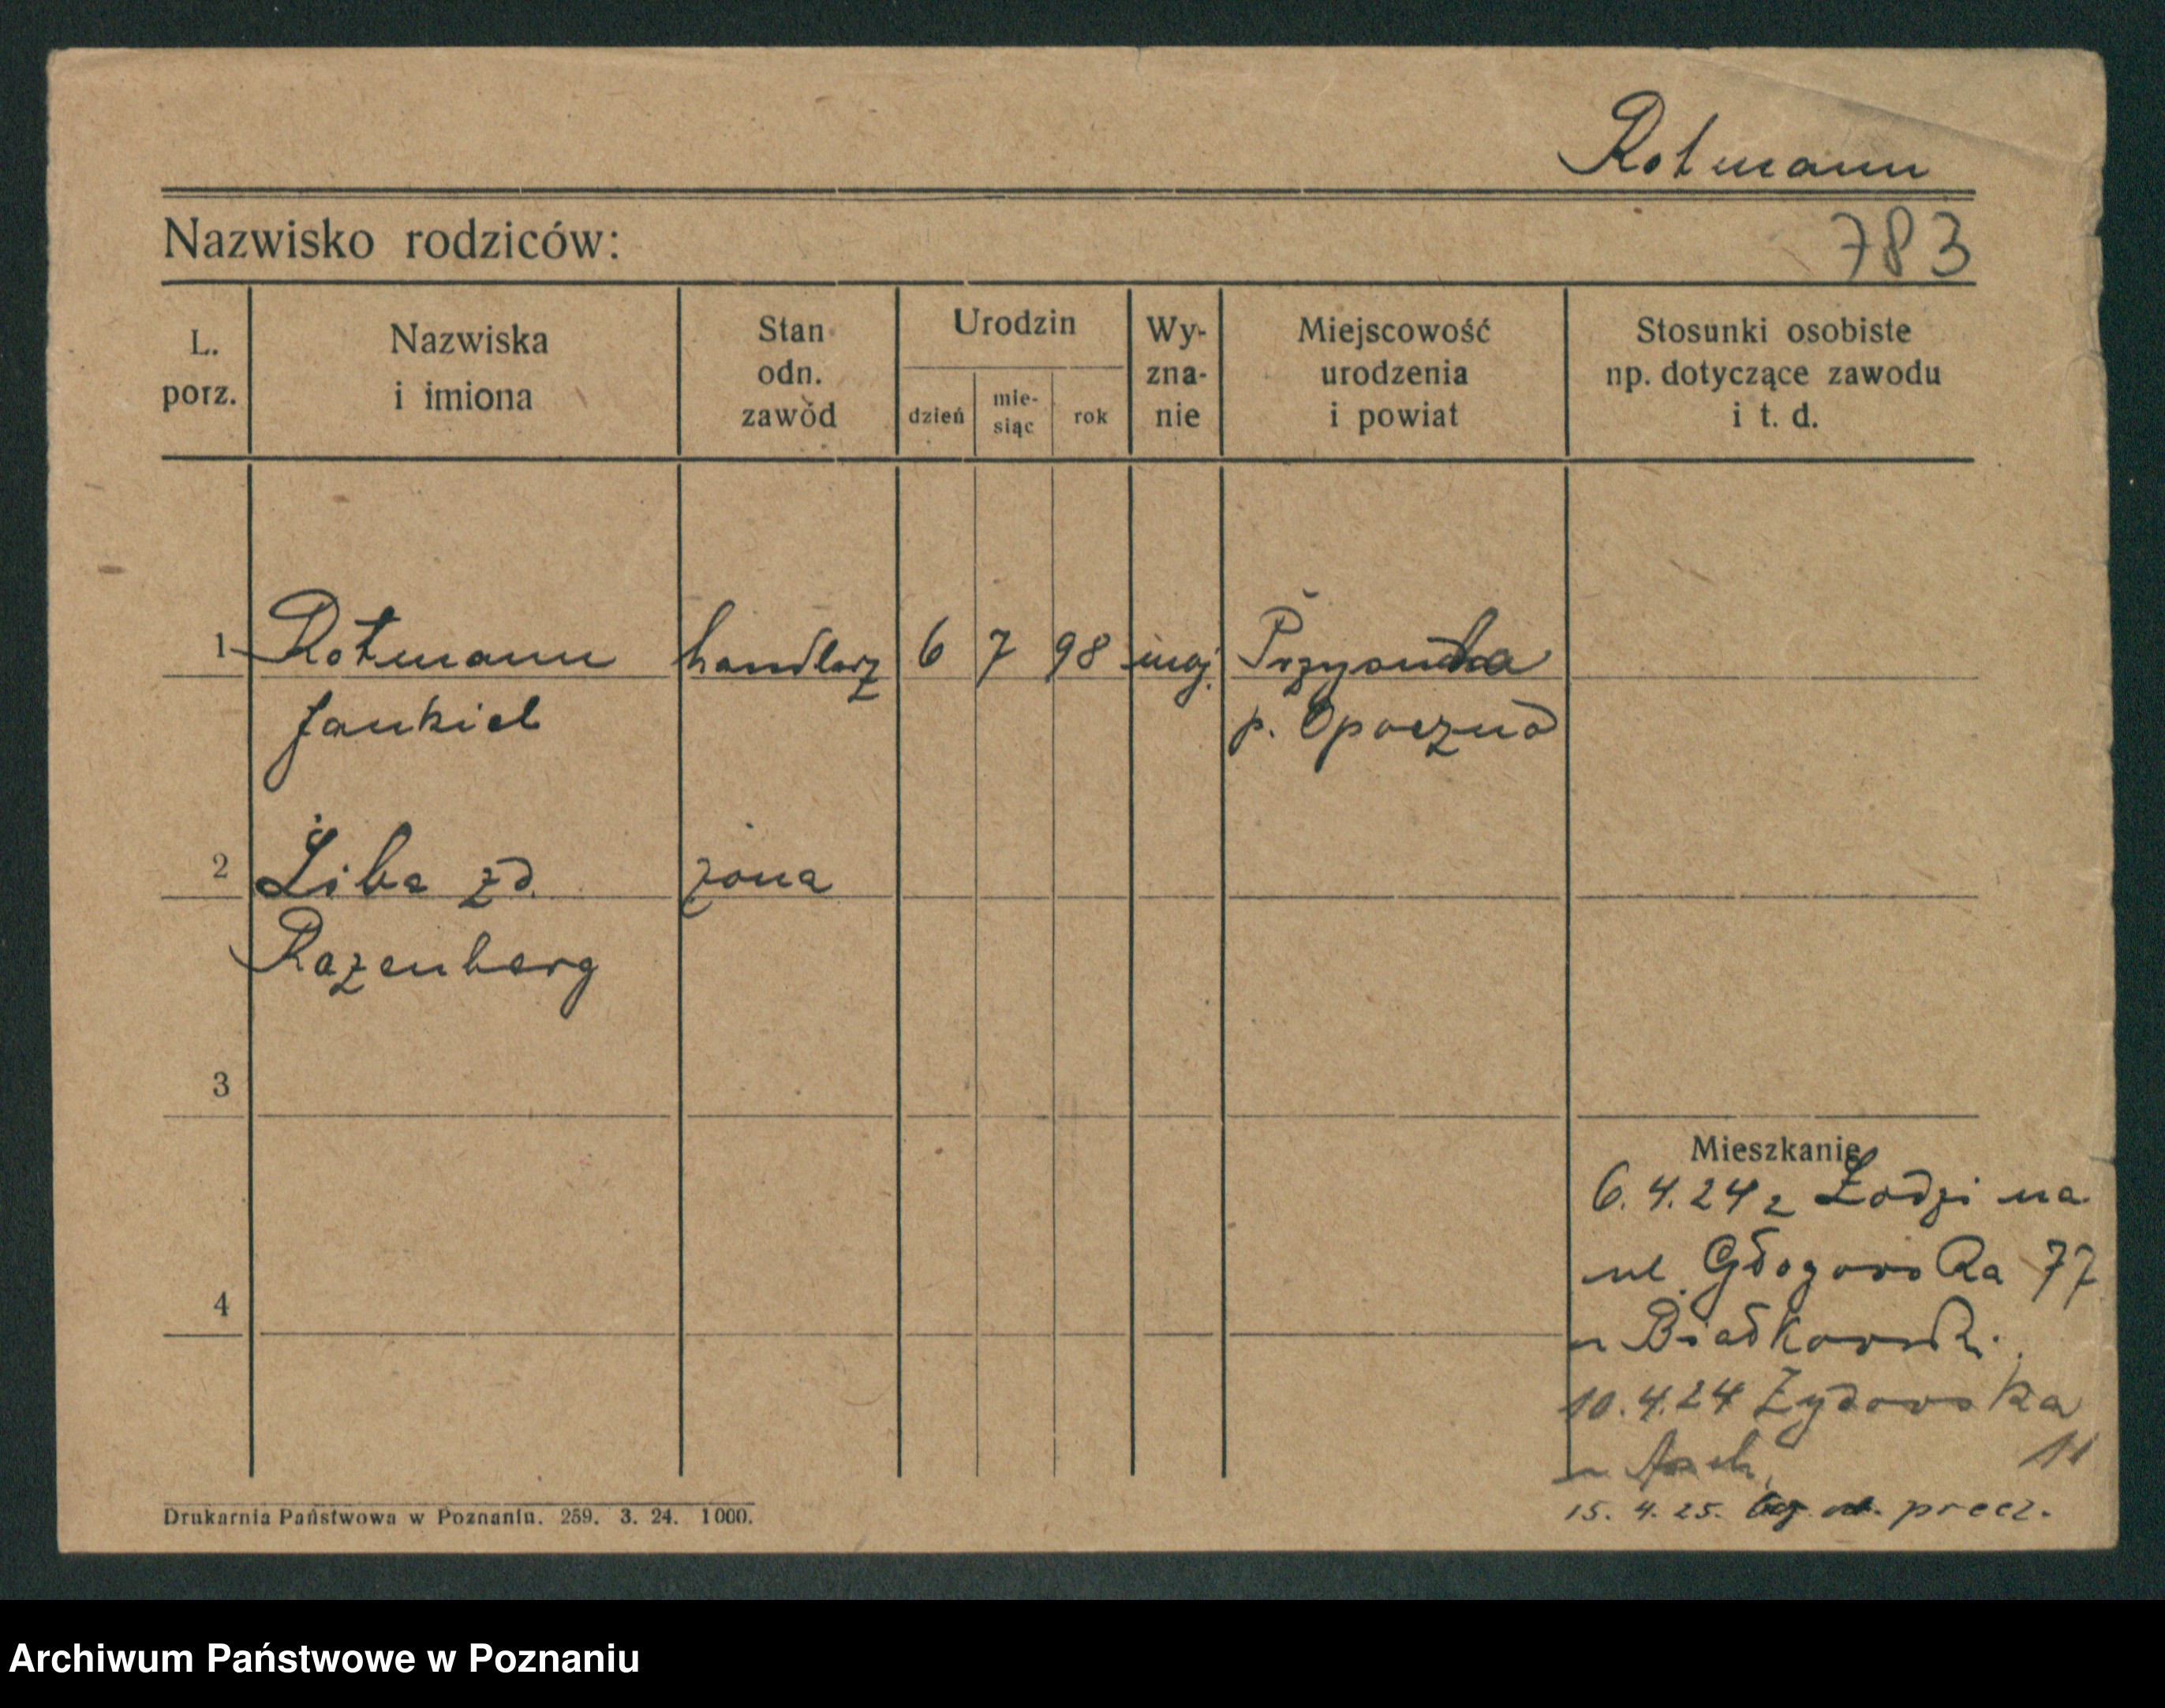 Rotmann
Nazwisko rodziców:
783
L. porz.
Nazwiska i imiona
Stan odn. zawód
Urodzin
dzień
mie-siąc
rok
Wy-zna-nie
Miejscowość urodzenia i powiat
Stosunki osobiste np. dotyczące zawodu i t. d.
1 Rotmann handlarz 6 7 98 moj. Przysucha
Jankiel p. Opoczno
2 Liba zd. żona
Rozenberg
3
Mieszkanie
6.4.24 z Łodzi na
ul. Głogowska 77
4
u Białkowski.
10.4.24 Żydowska
11
u
15. 4. 25. precz.
Drukarnia Państwowa w Poznaniu. 259. 3. 24. 1000.
Archiwum Państwowe w Poznaniu